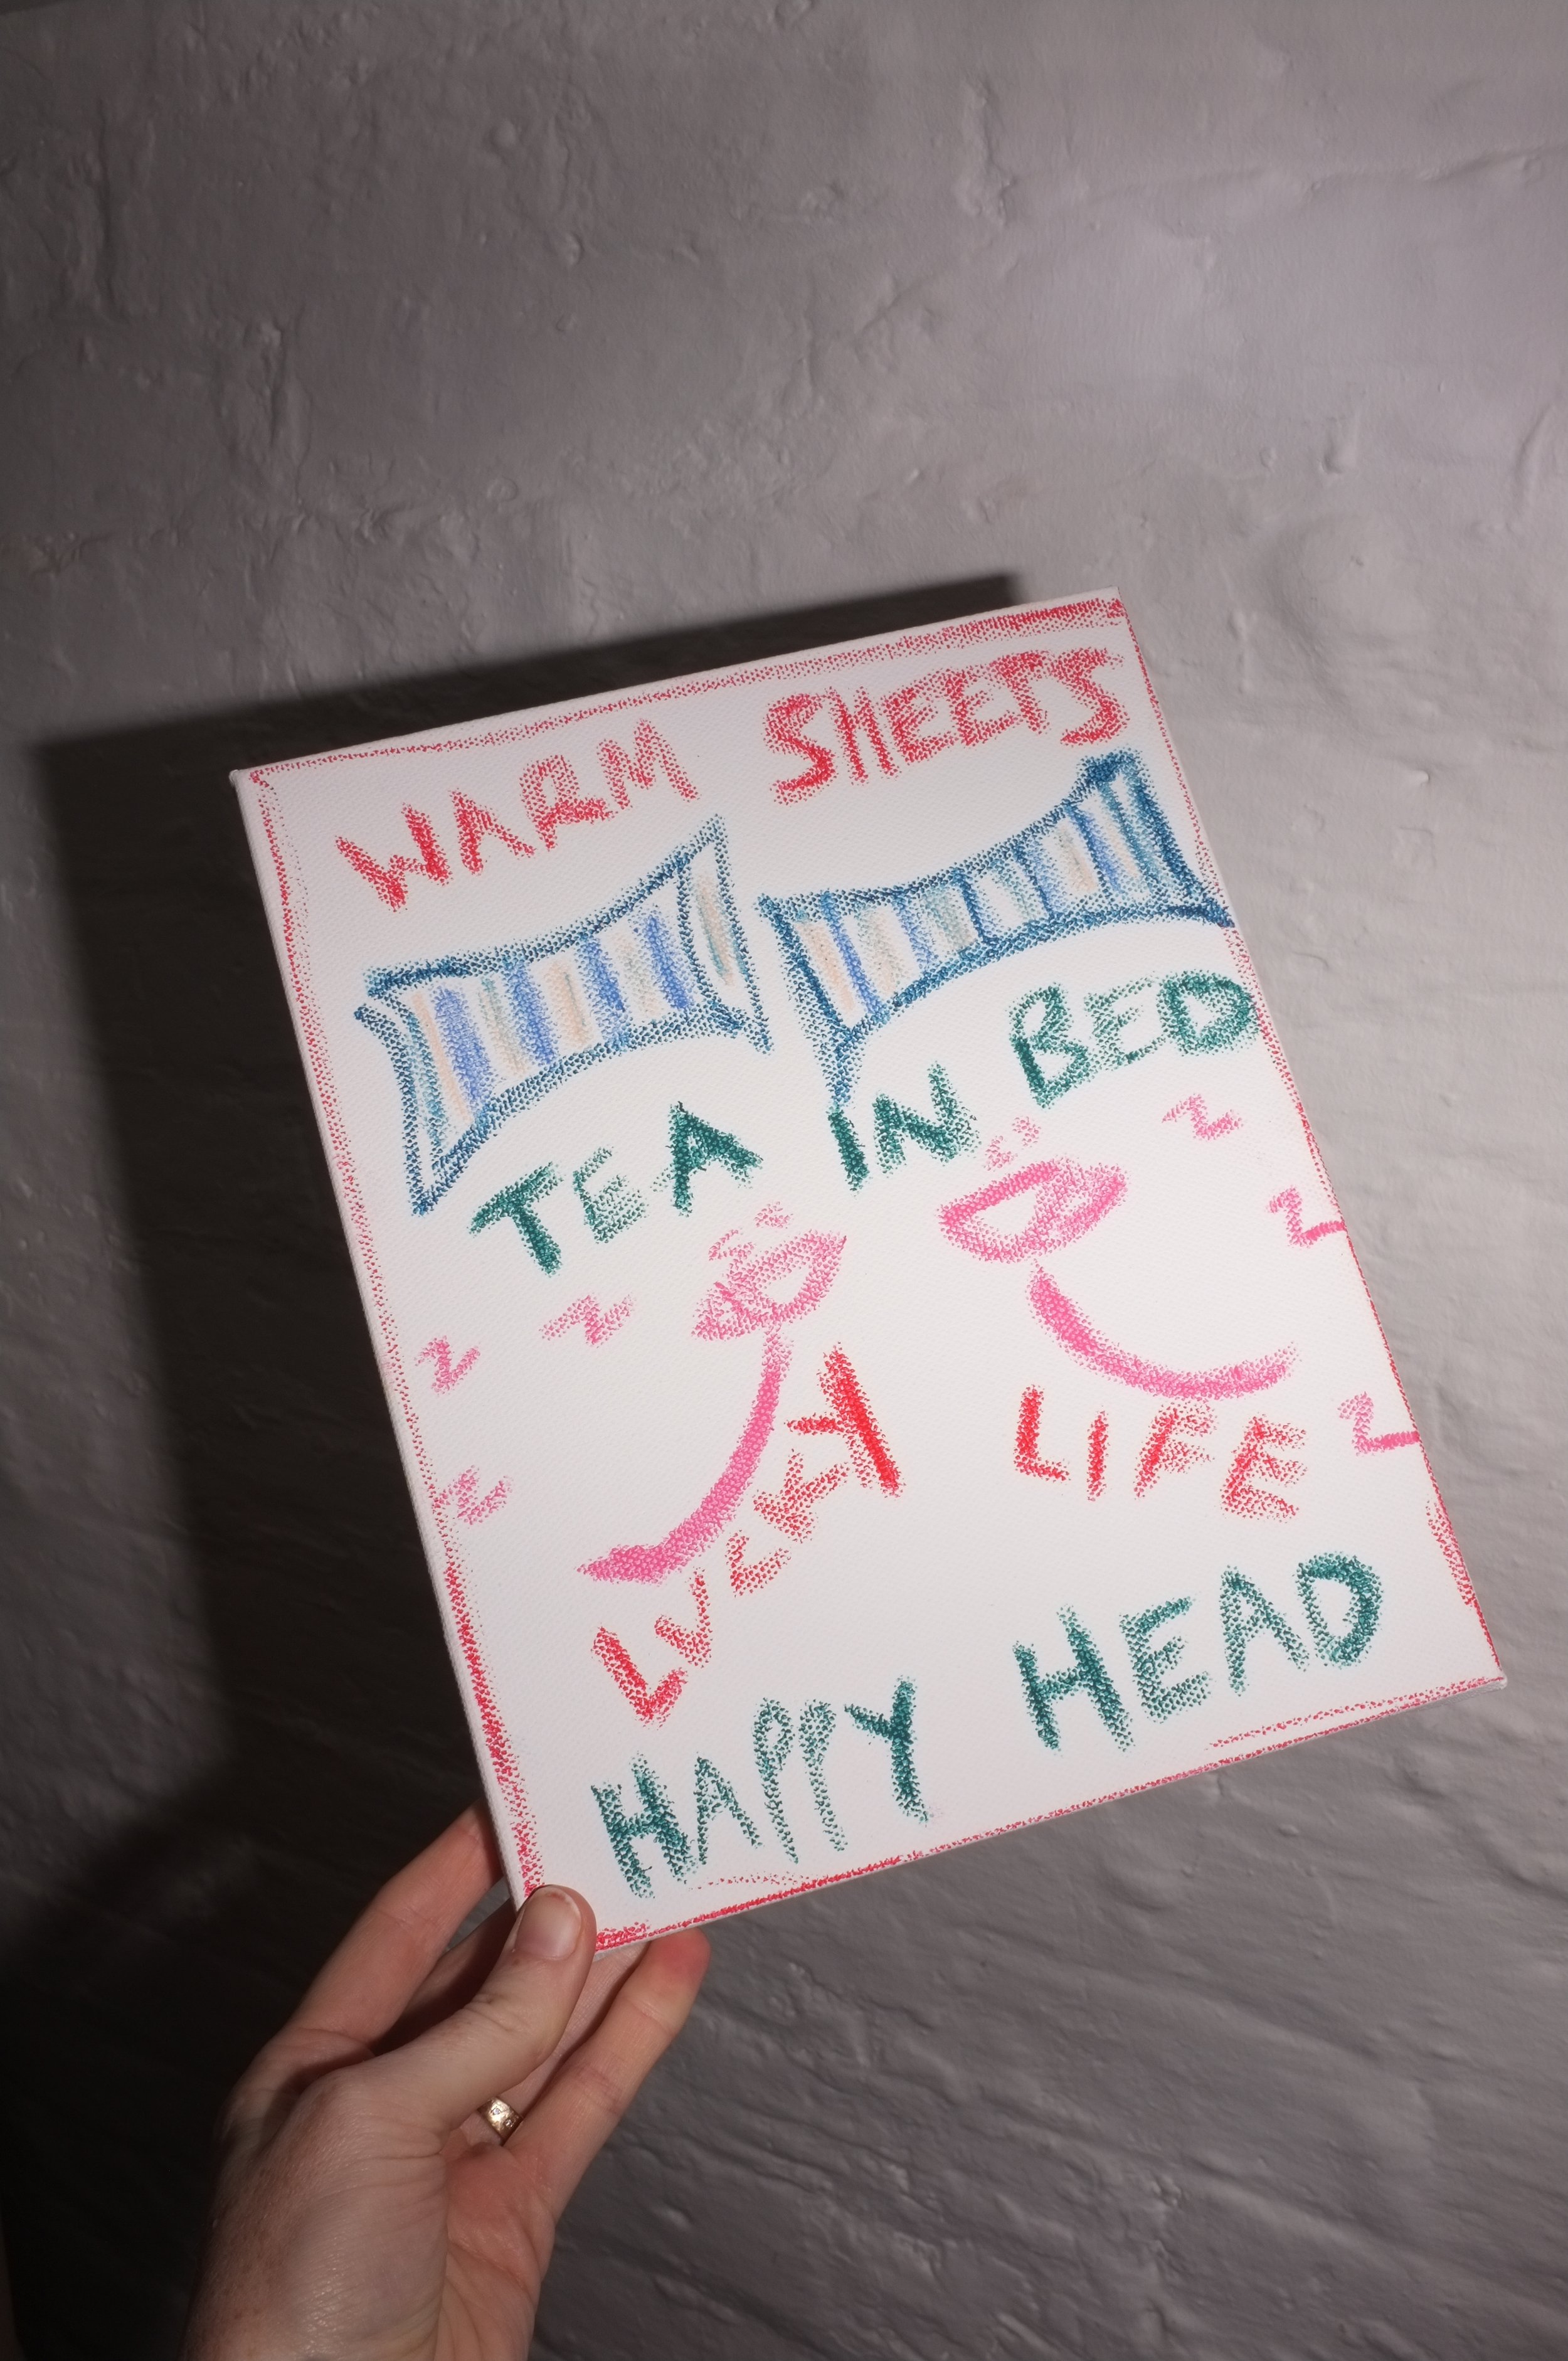 WARM SHEETS
TEA IN BED
z z z
z z z
LUCKY LIFE
HAPPY HEAD